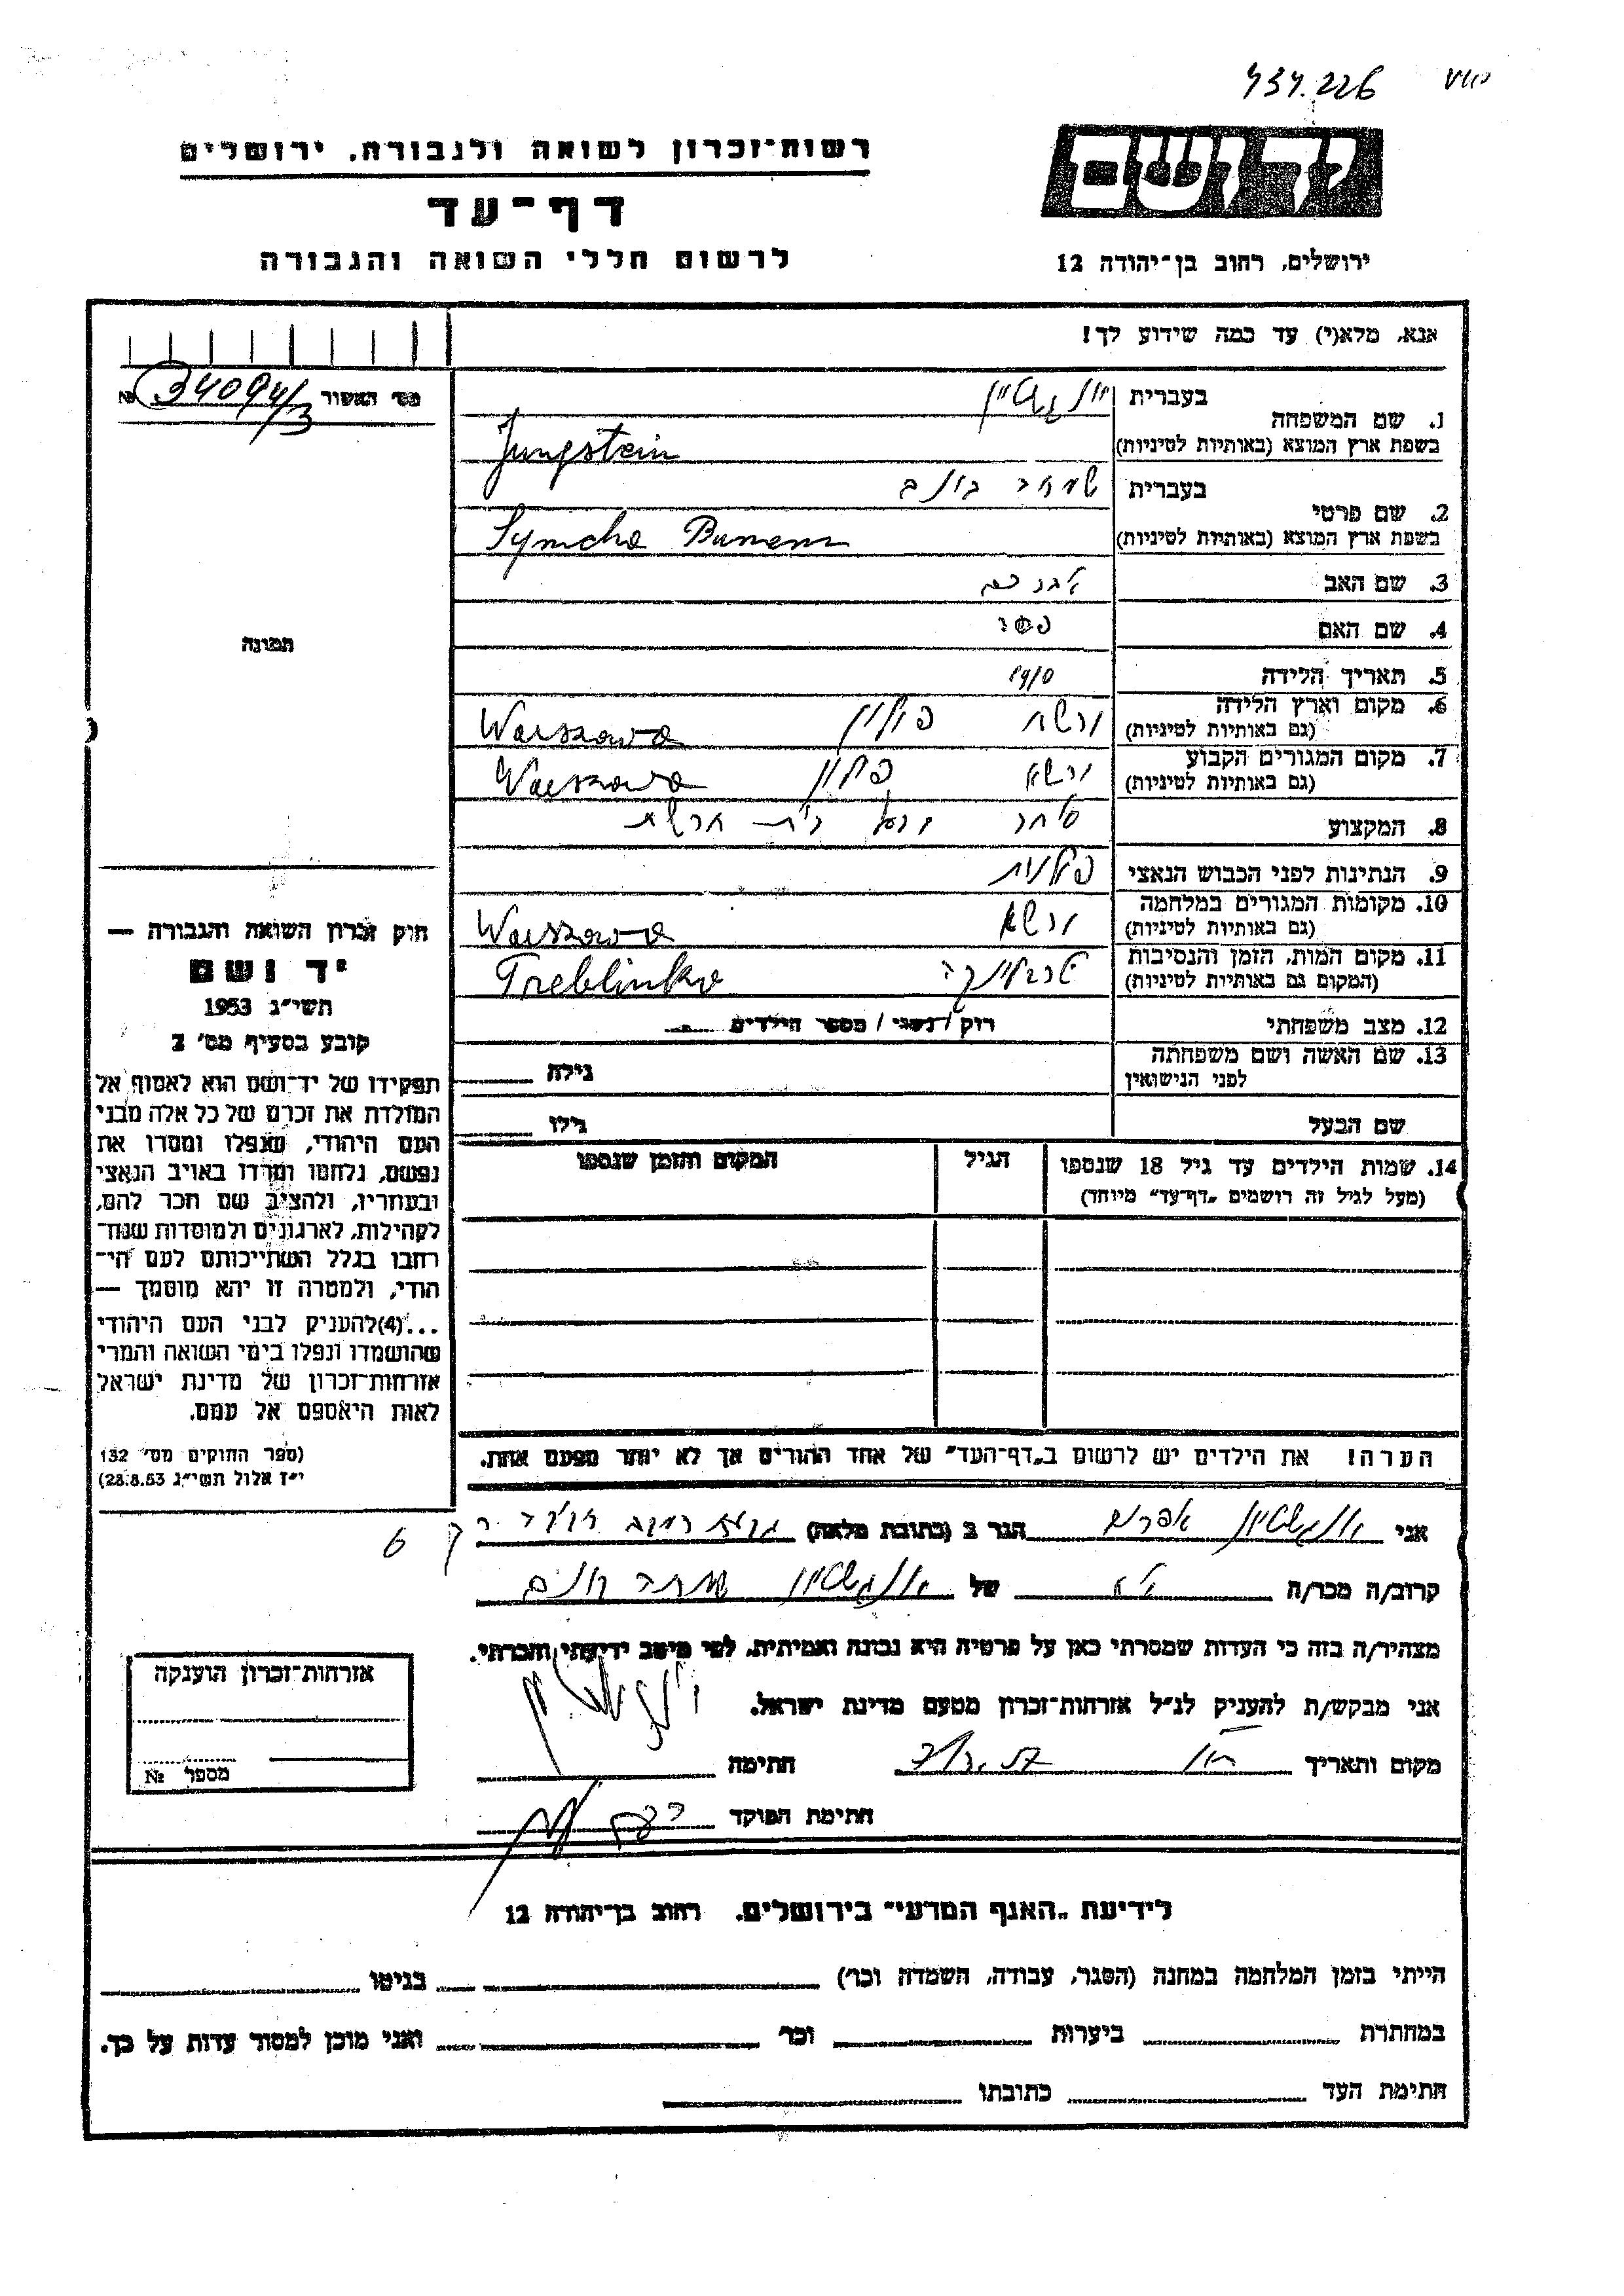 434.226
רשות־זכרון לשואה ולגבורה, ירושלים
דף־עד
לרשום חללי השואה והגבורה
יד ושם
ירושלים, רחוב בן־יהודה 12
אנא, מלא(י) עד כמה שידוע לך!
מס' האשור № 34094/3
1. שם המשפחה
בעברית יונגשטיין
בשפת ארץ המוצא (באותיות לטיניות) Jungstein
2. שם פרטי
בעברית שמחה בונם
בשפת ארץ המוצא (באותיות לטיניות) Symcha Bunem
3. שם האב אברהם
4. שם האם
5. תאריך הלידה 1910
6. מקום וארץ הלידה ורשה פולין Warszawa
(גם באותיות לטיניות)
7. מקום המגורים הקבוע ורשא פולין Warszawa
(גם באותיות לטיניות)
8. המקצוע סוחר בית חרשת
9. הנתינות לפני הכבוש הנאצי פולנית
10. מקומות המגורים במלחמה ורשא Warszawa
(גם באותיות לטיניות)
11. מקום המות, הזמן והנסיבות טרבלינקה Treblinka
(המקום גם באותיות לטיניות)
12. מצב משפחתי רוק / נשוי / מספר הילדים
13. שם האשה ושם משפחתה
לפני הנישואין
גילה
שם הבעל גילו
14. שמות הילדים עד גיל 18 שנספו הגיל המקום והזמן שנספו
(מעל לגיל זה רושמים "דף־עד" מיוחד)
הערה! את הילדים יש לרשום ב"דף־העד" של אחד ההורים אך לא יותר מפעם אחת.
תמונה
חוק זכרון השואה והגבורה —
יד ושם
תשי"ג 1953
קובע בסעיף מס' 2
תפקידו של יד־ושם הוא לאסוף אל
המולדת את זכרם של כל אלה מבני
העם היהודי, שנפלו ומסרו את
נפשם, נלחמו ומרדו באויב הנאצי
ובעוזריו, ולהציב שם וזכר להם,
לקהילות, לארגונים ולמוסדות שנח־
רבו בגלל השתייכותם לעם הי־
הודי, ולמטרה זו יהא מוסמך —
...(4)להעניק לבני העם היהודי
שהושמדו ונפלו בימי השואה והמרי
אזרחות־זכרון של מדינת ישראל
לאות היאספם אל עמם.
(ספר החוקים מס' 132
י"ז אלול תשי"ג 28.8.53)
אני יונגשטיין אפרים הגר ב (כתובת מלאה) גבעת רמב"ם 6
קרוב/ה מכר/ה של יונגשטיין שמחה בונם
מצהיר/ה בזה כי העדות שמסרתי כאן על פרטיה היא נכונה ואמיתית, לפי מיטב ידיעתי והכרתי.
אני מבקש/ת להעניק לנ"ל אזרחות־זכרון מטעם מדינת ישראל.
מקום ותאריך חתימה
חתימת הפוקד
אזרחות־זכרון הוענקה
מספר №
לידיעת "האגף המדעי" בירושלים. רחוב בן־יהודה 12
הייתי בזמן המלחמה במחנה (הסגר, עבודה, השמדה וכו') בגיטו
במחתרת ביערות וכו' ואני מוכן למסור עדות על כך.
חתימת העד כתובתו